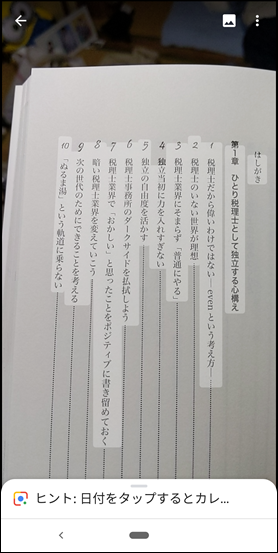 はしがき
第1章 ひとり税理士として独立する心構え
1 税理士だから偉いわけではない―evenという考え方―
2 税理士のいない世界が理想
3 税理士業界にそまらず「普通にやる」
4 独立当初に力を入れすぎない
5 独立の自由度を活かす
6 税理士事務所のダークサイドを払拭しよう
7 税理士業界で「おかしい」と思ったことをポジティブに書き留めておく
8 暗い税理士業界を変えていこう
9 次の世代のためにできることを考える
10 「ぬるま湯」という軌道に乗らない
ヒント: 日付をタップするとカレ...